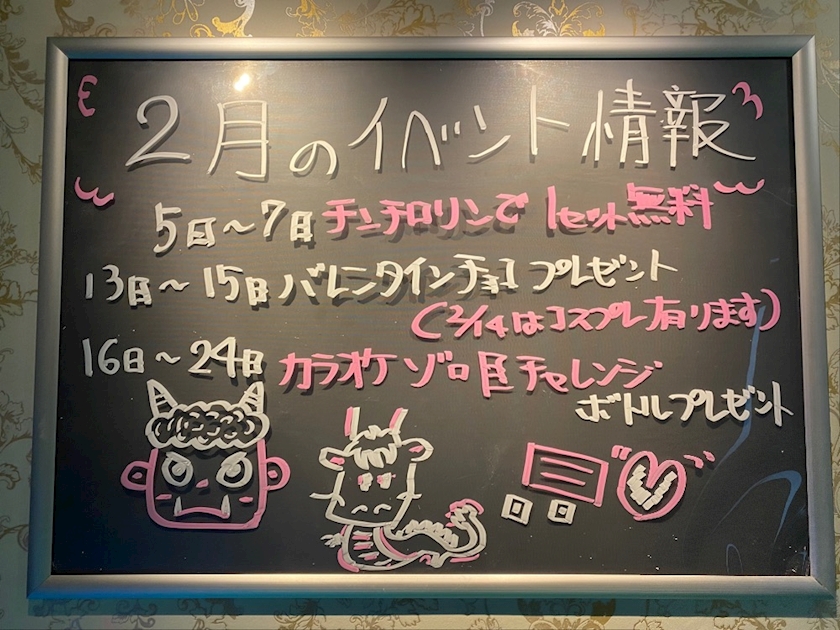 2月のイベント情報
5日～7日 チンチロリンで 1セット無料
13日～15日 バレンタインチョコ プレゼント
(2/14はコスプレ有ります)
16日～24日 カラオケ ゾロ目チャレンジ
ボトルプレゼント